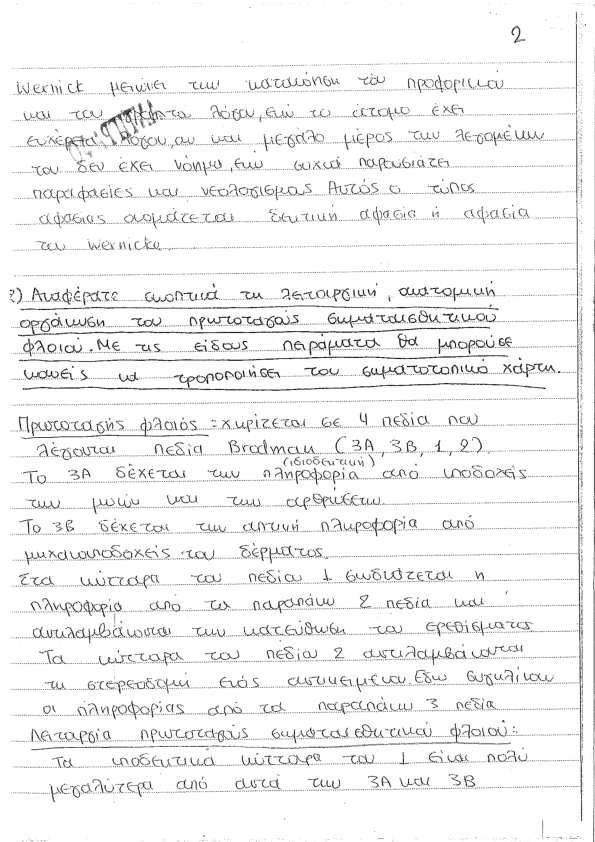 2
Wernick μειώνει την κατανόηση του προφορικού
και του γραπτού λόγου, ενώ το άτομο έχει
ευχέρεια λόγου, αν και μεγάλο μέρος των λεγομένων
του δεν έχει νόημα, ενώ συχνά παρουσιάζει
παραφασίες και νεολογισμούς. Αυτός ο τύπος
αφασίας ονομάζεται δεκτική αφασία ή αφασία
του Wernicke.
2) Αναφέρατε συνοπτικά τη λειτουργική, ανατομική
οργάνωση του πρωτοταγούς σωματαισθητικού
φλοιού. Με τις είδους πειράματα θα μπορούσε
κανείς να τροποποιήσει τον σωματοτοπικό χάρτη.
Πρωτοταγής φλοιός: χωρίζεται σε 4 πεδία που
λέγονται πεδία Brodman (3A, 3B, 1, 2).
Το 3A δέχεται την (ιδιοδεκτική) πληροφορία από υποδοχείς
των μυών και των αρθρώσεων.
Το 3B δέχεται την απτική πληροφορία από
μηχανουποδοχείς του δέρματος.
Στα κύτταρα του πεδίου 1 συνδυάζεται η
πληροφορία από τα παραπάνω 2 πεδία και
αντιλαμβάνονται την κατεύθυνση του ερεθίσματος
Τα κύτταρα του πεδίου 2 αντιλαμβάνονται
τη στερεοδομή ενός αντικειμένου. Εδώ συγκλίνουν
οι πληροφορίες από τα παραπάνω 3 πεδία
Λειτουργία πρωτοταγούς σωματαισθητικού φλοιού:
Τα υποδεκτικά κύτταρα του 1 είναι πολύ
μεγαλύτερα από αυτά των 3A και 3B